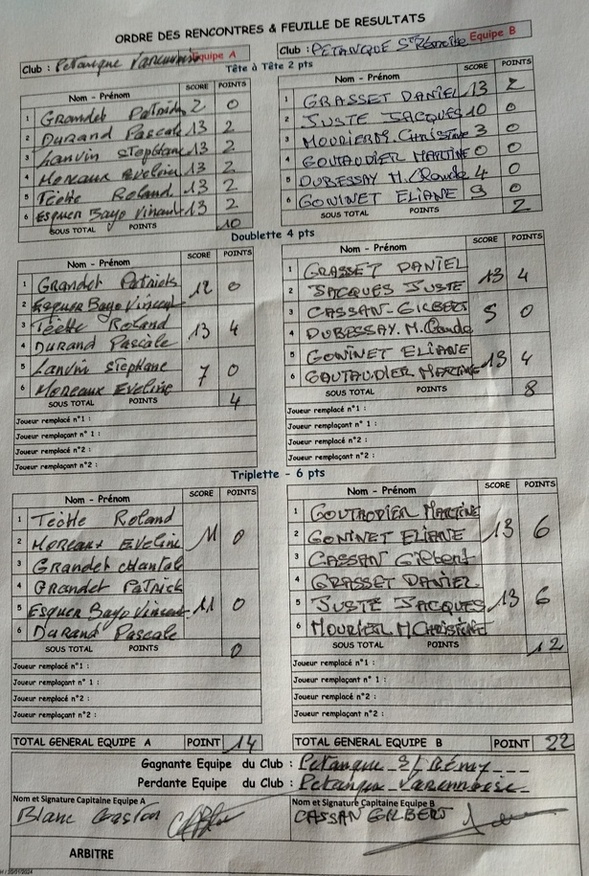 ORDRE DES RENCONTRES & FEUILLE DE RESULTATS
Club : Petanque Varennoise Equipe A
Club : PETANQUE St Rémoise Equipe B
Tête à Tête 2 pts
Nom - Prénom SCORE POINTS
1 Grandet Patrick 2 0
2 Durand Pascale 13 2
3 Lanvin Stephane 13 2
4 Moreaux Eveline 13 2
5 Teitte Roland 13 2
6 Esquer Bayo Vincent 13 2
SOUS TOTAL POINTS 10
Nom - Prénom SCORE POINTS
1 GRASSET DANIEL 13 2
2 JUSTE JACQUES 10 0
3 MOURIER M. Christine 3 0
4 GOUTAUDIER MARTINE 0 0
5 DUBESSAY M. Claude 4 0
6 GONINET ELIANE 9 0
SOUS TOTAL POINTS 2
Doublette 4 pts
Nom - Prénom SCORE POINTS
1 Grandet Patrick
2 Esquer Bayo Vincent 12 0
3 Teitte Roland
4 Durand Pascale 13 4
5 Lanvin Stephane
6 Moreaux Eveline 7 0
SOUS TOTAL POINTS 4
Joueur remplacé n°1 :
Joueur remplaçant n° 1 :
Joueur remplacé n°2 :
Joueur remplaçant n°2 :
Nom - Prénom SCORE POINTS
1 GRASSET DANIEL
2 JACQUES JUSTE 13 4
3 CASSAN-GILBERT
4 DUBESSAY. M. Claude 5 0
5 GONINET ELIANE
6 GOUTAUDIER MARTINE 13 4
SOUS TOTAL POINTS 8
Joueur remplacé n°1 :
Joueur remplaçant n° 1 :
Joueur remplacé n°2 :
Joueur remplaçant n°2 :
Triplette - 6 pts
Nom - Prénom SCORE POINTS
1 Teitte Roland
2 Moreaux Eveline 11 0
3 Grandet Chantal
4 Grandet Patrick
5 Esquer Bayo Vincent 11 0
6 Durand Pascale
SOUS TOTAL POINTS 0
Joueur remplacé n°1 :
Joueur remplaçant n° 1 :
Joueur remplacé n°2 :
Joueur remplaçant n°2 :
Nom - Prénom SCORE POINTS
1 GOUTAUDIER MARTINE
2 GONINET ELIANE 13 6
3 CASSAN Gilbert
4 GRASSET DANIEL
5 JUSTE JACQUES 13 6
6 MOURIER M CHRISTINE
SOUS TOTAL POINTS 12
Joueur remplacé n°1 :
Joueur remplaçant n° 1 :
Joueur remplacé n°2 :
Joueur remplaçant n°2 :
TOTAL GENERAL EQUIPE A POINT 14
TOTAL GENERAL EQUIPE B POINT 22
Gagnante Equipe du Club : Petanque St Rémy
Perdante Equipe du Club : Petanque Varennoise
Nom et Signature Capitaine Equipe A
Blanc Gaston
Nom et Signature Capitaine Equipe B
CASSAN GILBERT
ARBITRE